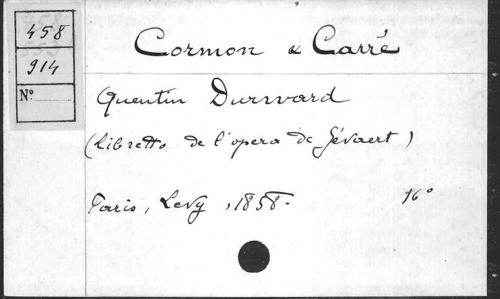 458
914
Nº
Cormon & Carré
Quentin Durward
(Libretto de l'opera de Gévaert)
Paris, Levy, 1858. 16°